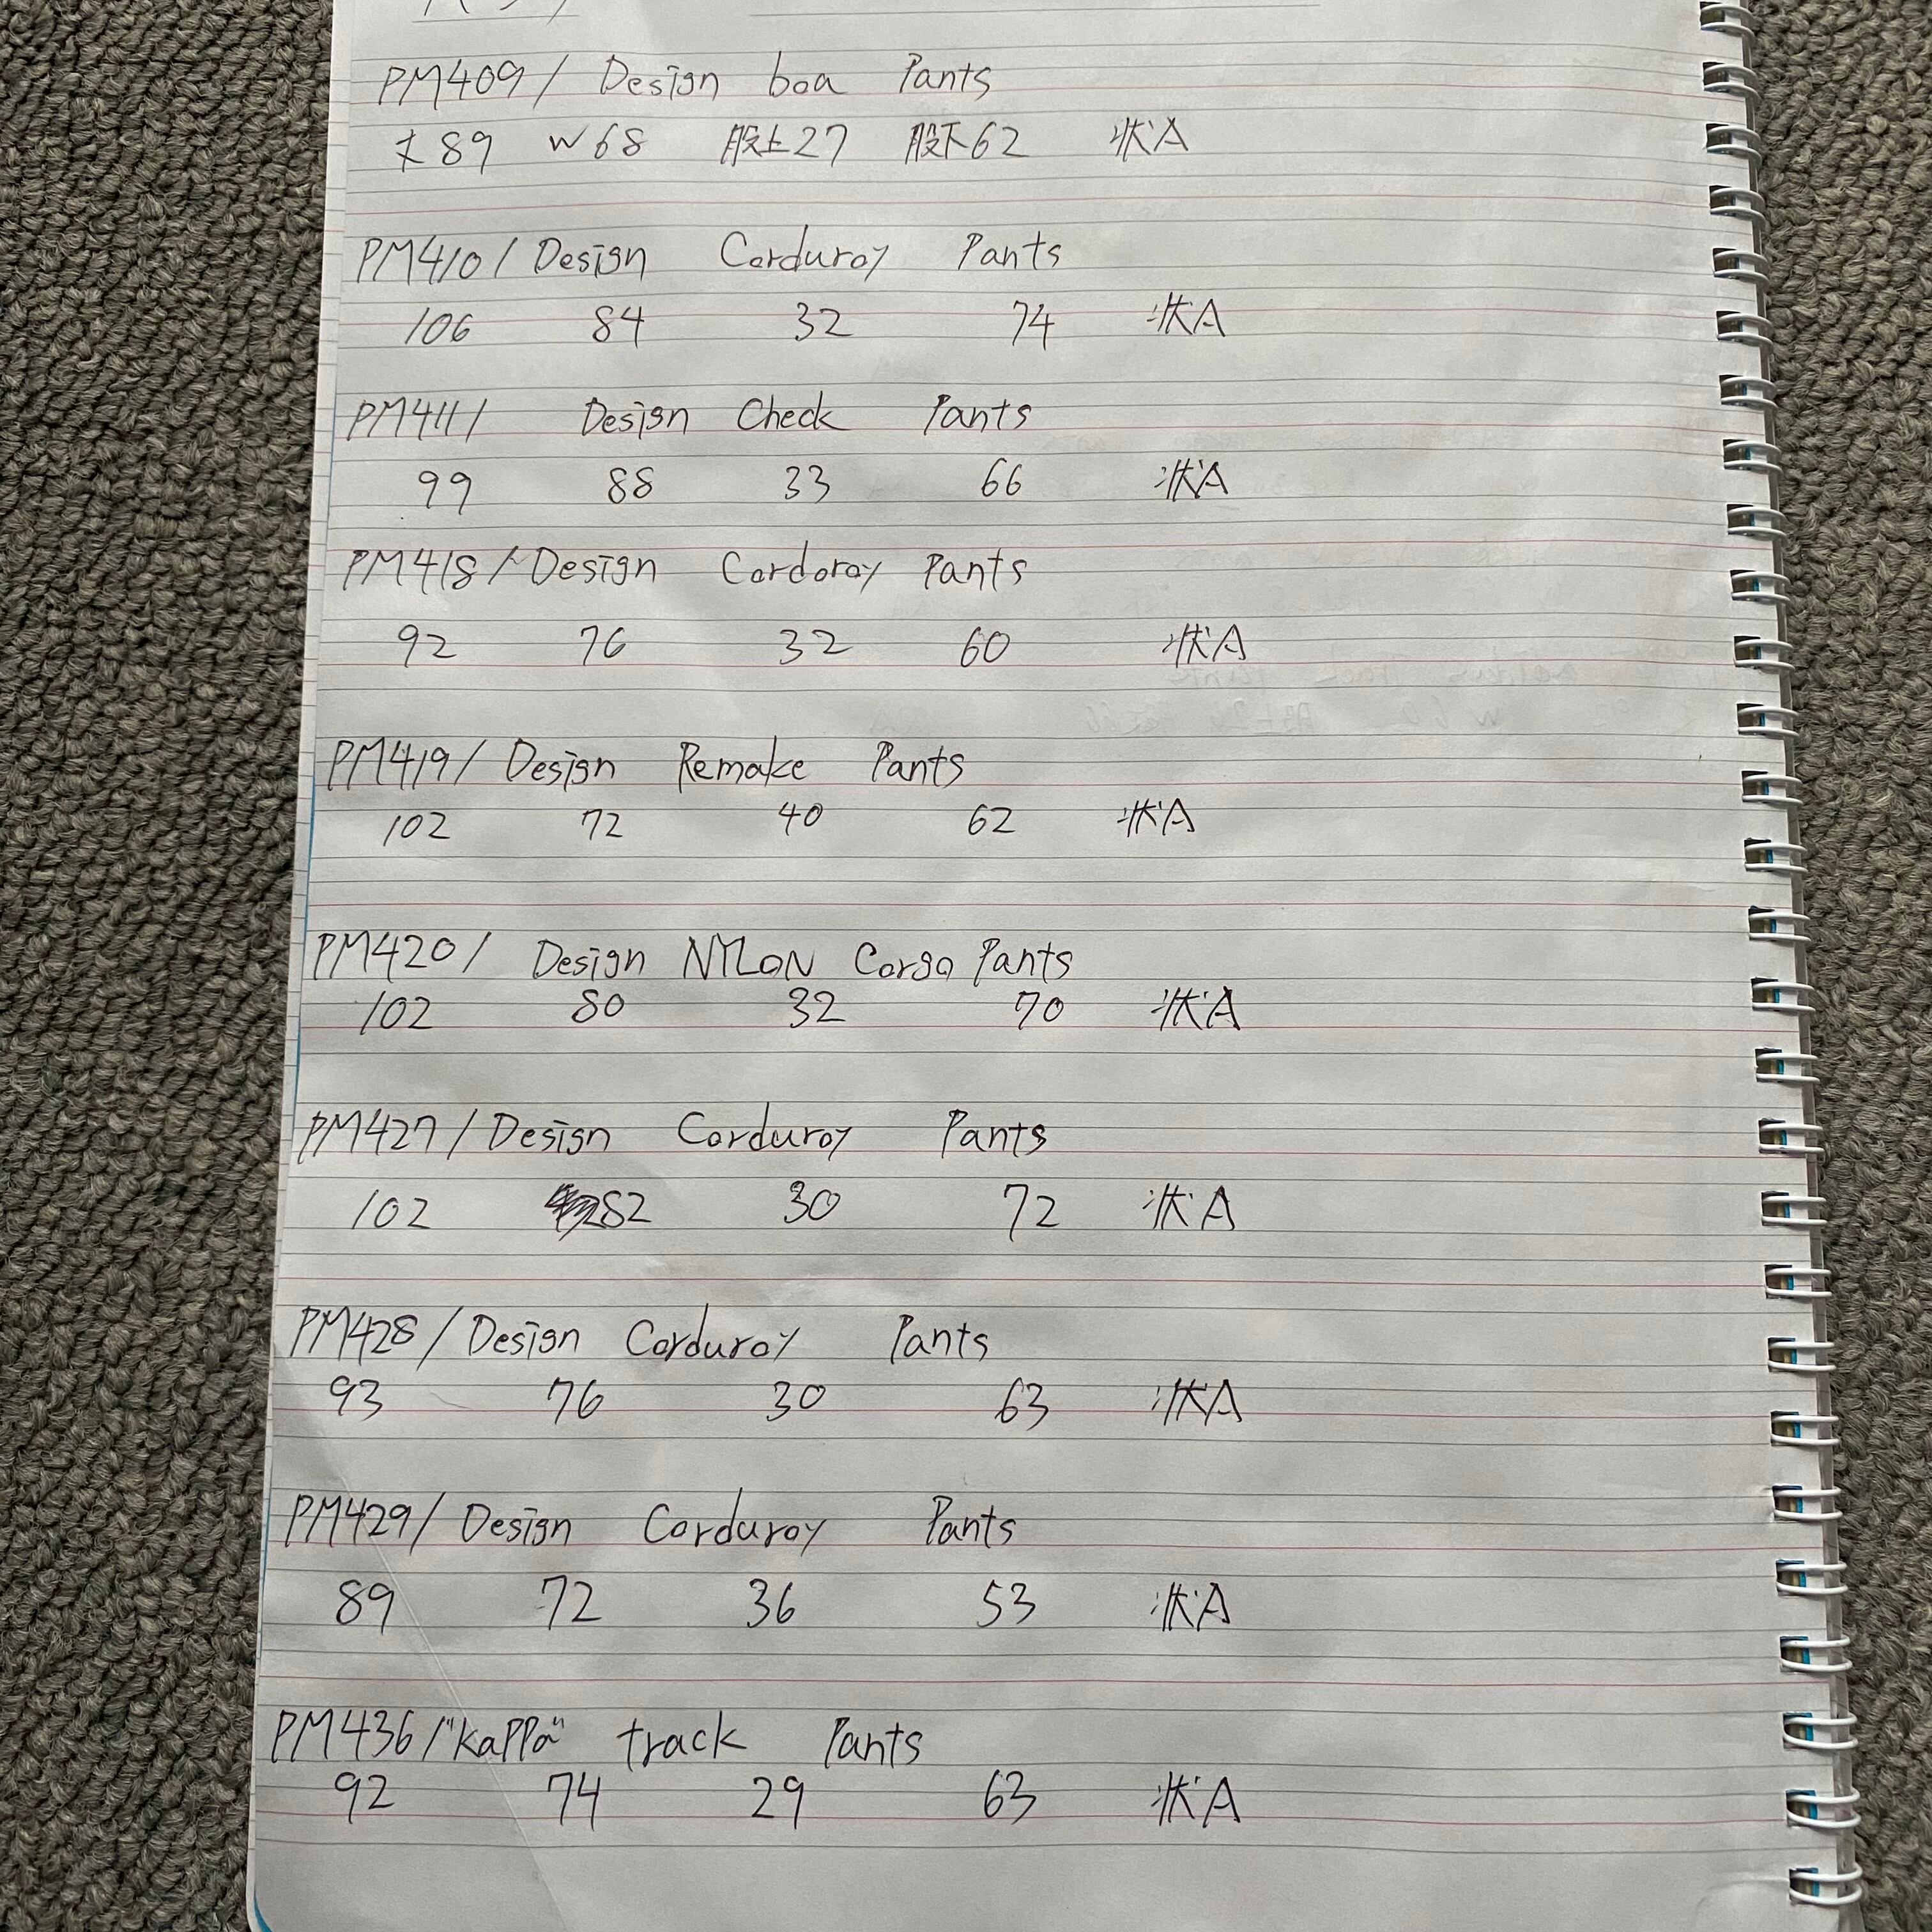 PM409/ Design boa Pants
丈89 W68 股上27 股下62 状A
PM410/ Design Corduroy Pants
106 84 32 74 状A
PM411/ Design Check Pants
99 88 33 66 状A
PM418/ Design Cordoroy Pants
92 76 32 60 状A
PM419/ Design Remake Pants
102 72 40 62 状A
PM420/ Design NYLON Corgo Pants
102 80 32 70 状A
PM427/ Design Corduroy Pants
102 82 30 72 状A
PM428/ Design Corduroy Pants
93 76 30 63 状A
PM429/ Design Corduroy Pants
89 72 36 53 状A
PM436/ "kaPPa" track Pants
92 74 29 63 状A